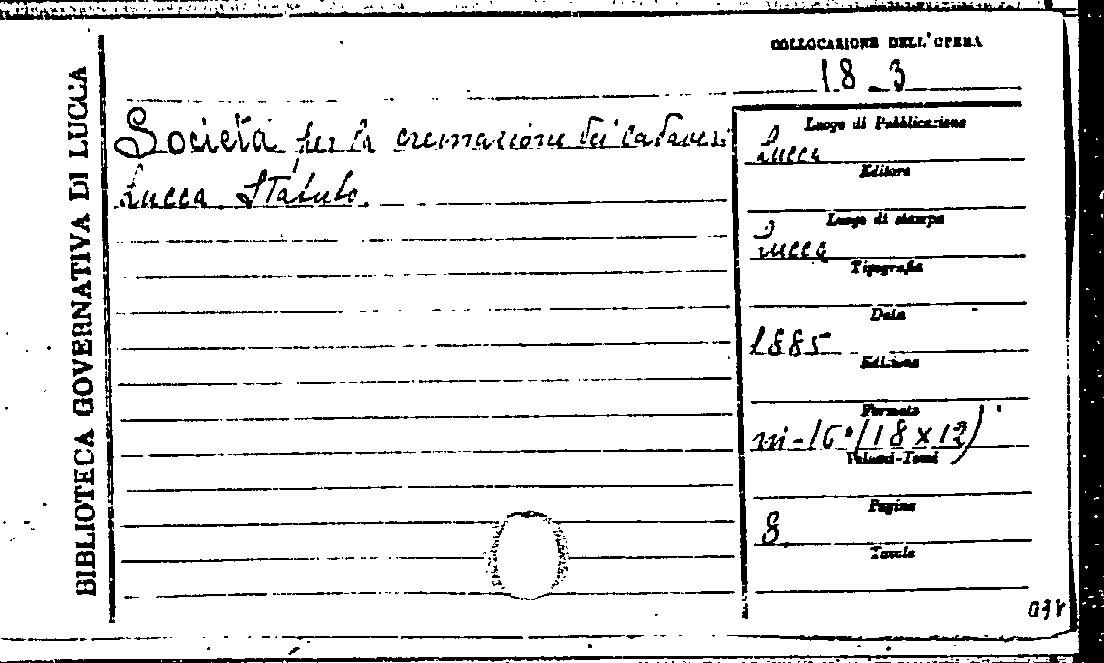 BIBLIOTECA GOVERNATIVA DI LUCCA
COLLOCAZIONE DELL'OPERA
18 3
Società per la cremazione dei cadaveri
Lucca. Statuto.
Luogo di Pubblicazione
Lucca
Editore
Luogo di stampa
Lucca
Tipografia
Data
1885
Edizione
Formato
in-16° (18 x 12)
Volumi-Tomi
Pagine
8
Tavole